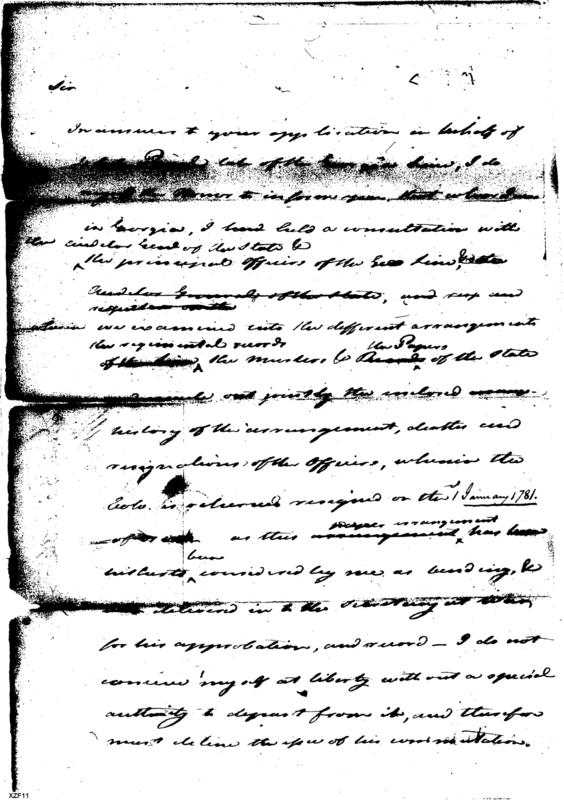 Sir
In answer to your application in behalf of
late of the Georgia Line, I do
myself the Honor to inform you, that when I was
in Georgia, I had held a consultation with
the Auditor Genl of the State &
the principal Officers of the Geo Line, & the
Auditor General of the State, and
wherein we examined into the different arrangements
the regimental records the Papers
of the Line, the Musters & Records of the State
and made out jointly the inclosed
history of the arrangement, deaths and
resignations of the Officers, wherein the
Colo. is returned resigned on the 1st January 1781.
arrangement
as this arrangement has been
been
hitherto considered by me as binding, &
delivered in to the Secretary at War
for his approbation, and record — I do not
conceive myself at liberty without a special
authority to depart from it, and therefore
must decline the issue of his commutation.
XZF11